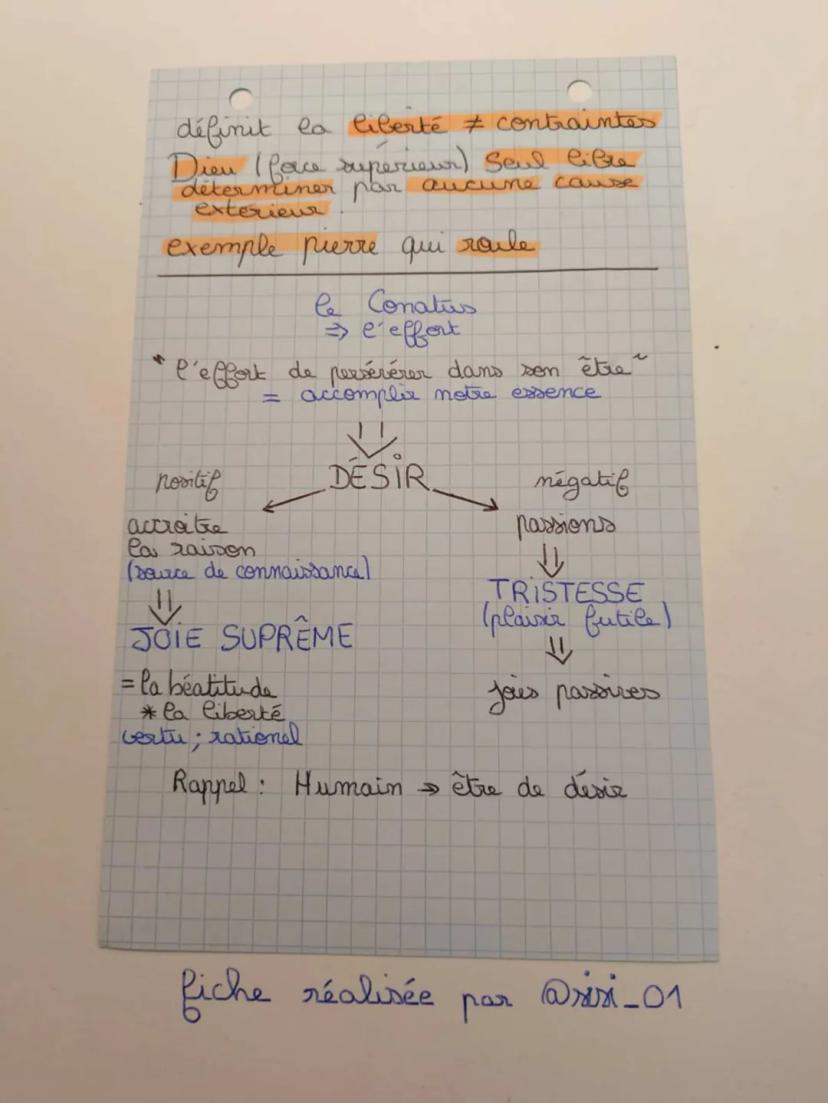 définit la liberté ≠ contraintes
Dieu (force supérieur) Seul libre
déterminer par aucune cause
exterieur.
exemple pierre qui roule
le Conatus
⇒ l'effort
"l'effort de persévérer dans son être"
= accomplir notre essence
DÉSIR
positif
accroître
la raison
(source de connaissance)
JOIE SUPRÊME
= la béatitude
* la liberté
vertu ; rationel
négatif
passions
TRISTESSE
(plaisir futile)
joies passives
Rappel : Humain → être de désir
fiche réalisée par @sisi_01